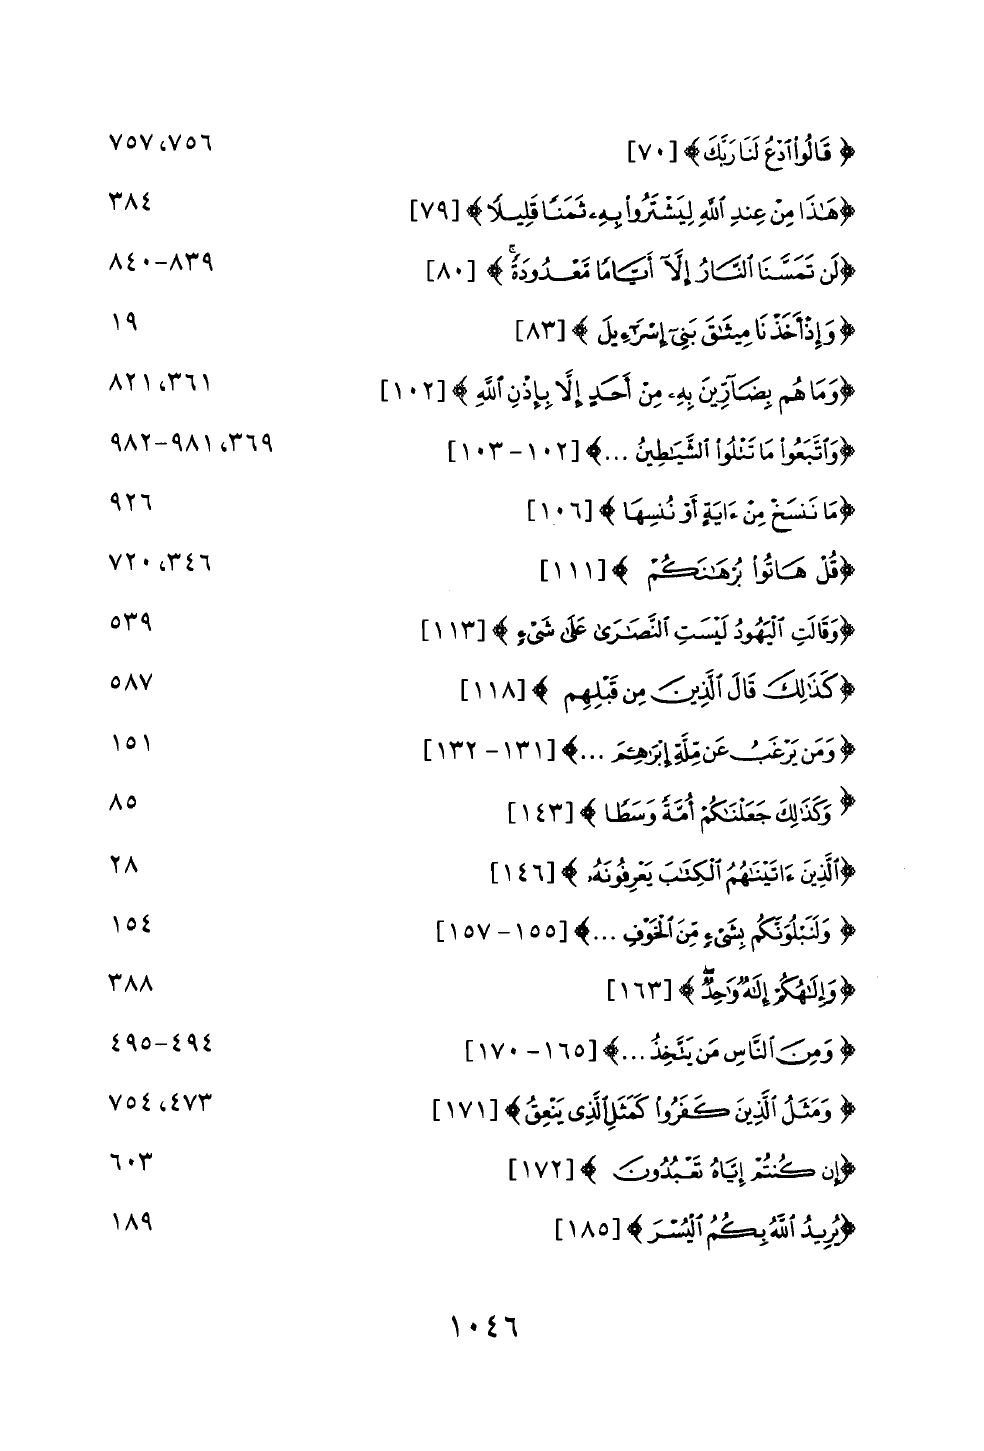 ﴿ قَالُوا۟ ٱدْعُ لَنَا رَبَّكَ ﴾ [٧٠] ٧٥٦، ٧٥٧
﴿هَٰذَا مِنْ عِندِ ٱللَّهِ لِيَشْتَرُوا۟ بِهِۦ ثَمَنًا قَلِيلًا ﴾ [٧٩] ٣٨٤
﴿لَن تَمَسَّنَا ٱلنَّارُ إِلَّآ أَيَّامًا مَّعْدُودَةً ۚ ﴾ [٨٠] ٨٣٩-٨٤٠
﴿ وَإِذْ أَخَذْنَا مِيثَٰقَ بَنِىٓ إِسْرَٰٓءِيلَ ﴾ [٨٣] ١٩
﴿وَمَا هُم بِضَآرِّينَ بِهِۦ مِنْ أَحَدٍ إِلَّا بِإِذْنِ ٱللَّهِ ﴾ [١٠٢] ٣٦١، ٨٢١
﴿وَٱتَّبَعُوا۟ مَا تَتْلُوا۟ ٱلشَّيَٰطِينُ ...﴾ [١٠٢-١٠٣] ٣٦٩، ٩٨١-٩٨٢
﴿مَا نَنسَخْ مِنْ ءَايَةٍ أَوْ نُنسِهَا ﴾ [١٠٦] ٩٢٦
﴿قُلْ هَاتُوا۟ بُرْهَٰنَكُمْ ﴾ [١١١] ٣٤٦، ٧٢٠
﴿وَقَالَتِ ٱلْيَهُودُ لَيْسَتِ ٱلنَّصَٰرَىٰ عَلَىٰ شَىْءٍ ﴾ [١١٣] ٥٣٩
﴿كَذَٰلِكَ قَالَ ٱلَّذِينَ مِن قَبْلِهِم ﴾ [١١٨] ٥٨٧
﴿ وَمَن يَرْغَبُ عَن مِّلَّةِ إِبْرَٰهِۦمَ ...﴾ [١٣١-١٣٢] ١٥١
﴿ وَكَذَٰلِكَ جَعَلْنَٰكُمْ أُمَّةً وَسَطًا ﴾ [١٤٣] ٨٥
﴿ٱلَّذِينَ ءَاتَيْنَٰهُمُ ٱلْكِتَٰبَ يَعْرِفُونَهُۥ ﴾ [١٤٦] ٢٨
﴿ وَلَنَبْلُوَنَّكُم بِشَىْءٍ مِّنَ ٱلْخَوْفِ ...﴾ [١٥٥-١٥٧] ١٥٤
﴿وَإِلَٰهُكُمْ إِلَٰهٌ وَٰحِدٌ ۖ ﴾ [١٦٣] ٣٨٨
﴿ وَمِنَ ٱلنَّاسِ مَن يَتَّخِذُ ...﴾ [١٦٥-١٧٠] ٤٩٤-٤٩٥
﴿ وَمَثَلُ ٱلَّذِينَ كَفَرُوا۟ كَمَثَلِ ٱلَّذِى يَنْعِقُ﴾ [١٧١] ٤٧٣، ٧٥٤
﴿إِن كُنتُمْ إِيَّاهُ تَعْبُدُونَ ﴾ [١٧٢] ٦٠٣
﴿يُرِيدُ ٱللَّهُ بِكُمُ ٱلْيُسْرَ ﴾ [١٨٥] ١٨٩
١٠٤٦